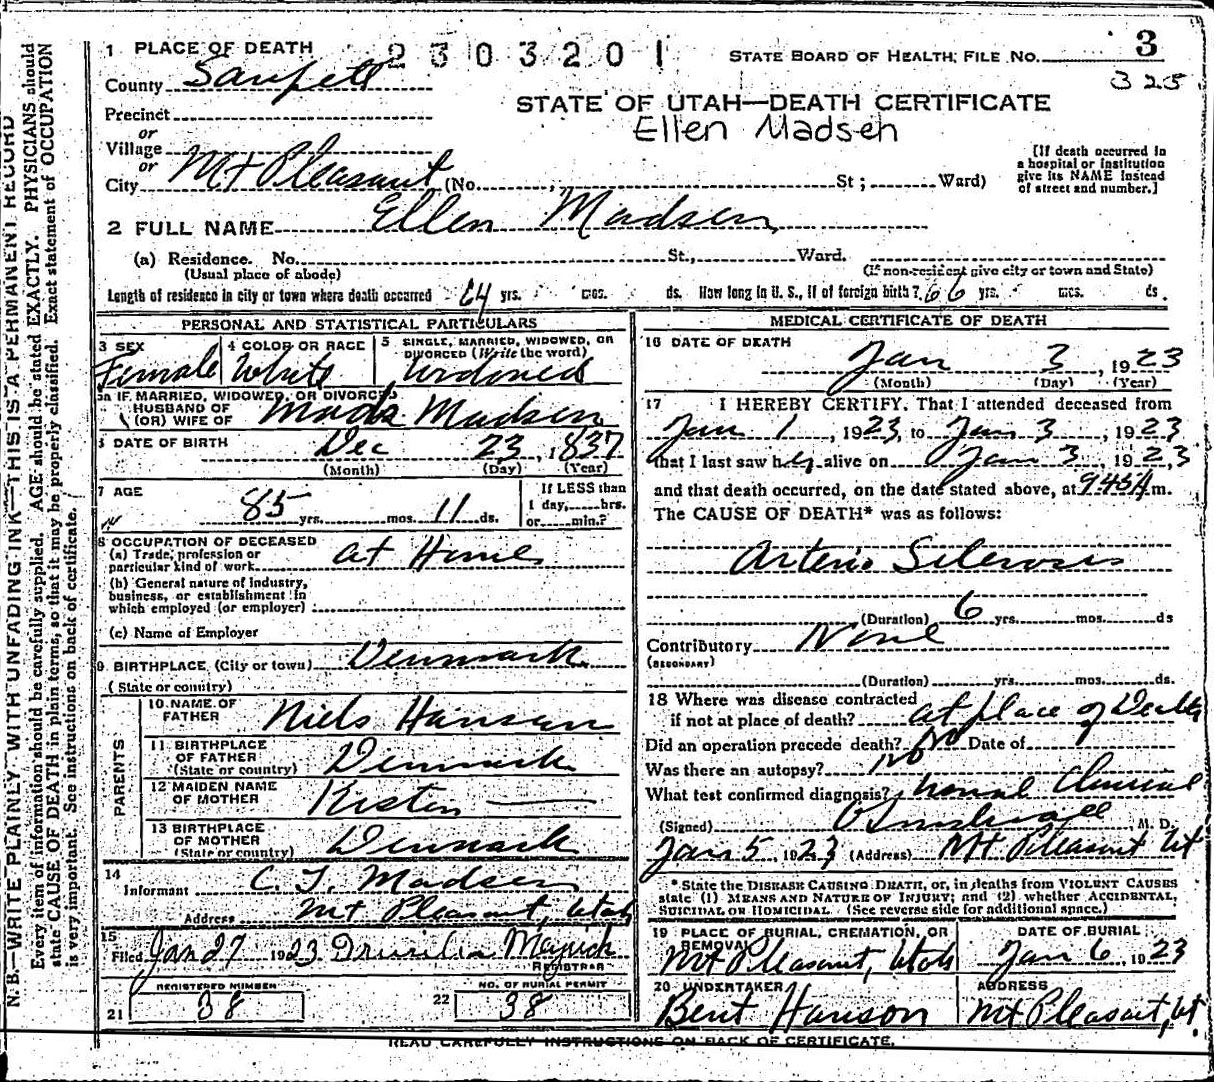 1 PLACE OF DEATH 2303201 STATE BOARD OF HEALTH, FILE NO. 3
County Sanpete 325
STATE OF UTAH—DEATH CERTIFICATE
Precinct
Ellen Madsen
or
Village
or
City Mt Pleasant (No. , St ; Ward)
(If death occurred in
a hospital or institution
give its NAME instead
of street and number.]
2 FULL NAME Ellen Madsen
(a) Residence. No. St., Ward.
(Usual place of abode) (If non-resident give city or town and State)
Length of residence in city or town where death occurred 64 yrs. mos. ds. How long in U. S., if of foreign birth? 66 yrs. mos. ds.
PERSONAL AND STATISTICAL PARTICULARS
3 SEX 4 COLOR OR RACE 5 SINGLE, MARRIED, WIDOWED, OR
DIVORCED (Write the word)
Female White Widowed
5a IF MARRIED, WIDOWED, OR DIVORCED
HUSBAND OF
(OR) WIFE OF Mads Madsen
6 DATE OF BIRTH Dec 23, 1837
(Month) (Day) (Year)
7 AGE
85 yrs. mos. 11 ds.
If LESS than
1 day, hrs.
or min.?
8 OCCUPATION OF DECEASED
(a) Trade, profession or
particular kind of work at Home
(b) General nature of industry,
business, or establishment in
which employed (or employer)
(c) Name of Employer
9 BIRTHPLACE (City or town) Denmark
(State or country)
PARENTS
10 NAME OF
FATHER Niels Hansen
11 BIRTHPLACE
OF FATHER
(State or country) Denmark
12 MAIDEN NAME
OF MOTHER Kisten
13 BIRTHPLACE
OF MOTHER
(State or country) Denmark
14
Informant Madsen
Address Mt Pleasant, Utah
15
Filed Jan 27 1923
REGISTRAR
REGISTERED NUMBER NO. OF BURIAL PERMIT
21 38 22 38
MEDICAL CERTIFICATE OF DEATH
16 DATE OF DEATH
Jan 3, 1923
(Month) (Day) (Year)
17 I HEREBY CERTIFY, That I attended deceased from
Jan 1, 1923, to Jan 3, 1923
that I last saw her alive on Jan 3, 1923
and that death occurred, on the date stated above, at 9 45 A m.
The CAUSE OF DEATH* was as follows:
Arterio Sclerosis
(Duration) 6 yrs. mos. ds
Contributory None
(SECONDARY)
(Duration) yrs. mos. ds.
18 Where was disease contracted
if not at place of death? at place of Death
Did an operation precede death? No Date of
Was there an autopsy? No
What test confirmed diagnosis? Clinical
(Signed) , M. D.
Jan 5, 1923 (Address) Mt Pleasant Ut
* State the DISEASE CAUSING DEATH, or, in deaths from VIOLENT CAUSES
state (1) MEANS AND NATURE OF INJURY; and (2) whether ACCIDENTAL,
SUICIDAL OR HOMICIDAL. (See reverse side for additional space.)
19 PLACE OF BURIAL, CREMATION, OR
REMOVAL DATE OF BURIAL
Mt Pleasant, Utah Jan 6, 1923
20 UNDERTAKER ADDRESS
Bent Hanson Mt Pleasant, Ut
READ CAREFULLY INSTRUCTIONS ON BACK OF CERTIFICATE.
N.B.—WRITE PLAINLY WITH UNFADING INK—THIS IS A PERMANENT RECORD
Every item of information should be carefully supplied. AGE should be stated EXACTLY. PHYSICIANS should
state CAUSE OF DEATH in plain terms, so that it may be properly classified. Exact statement of OCCUPATION
is very important. See instructions on back of certificate.